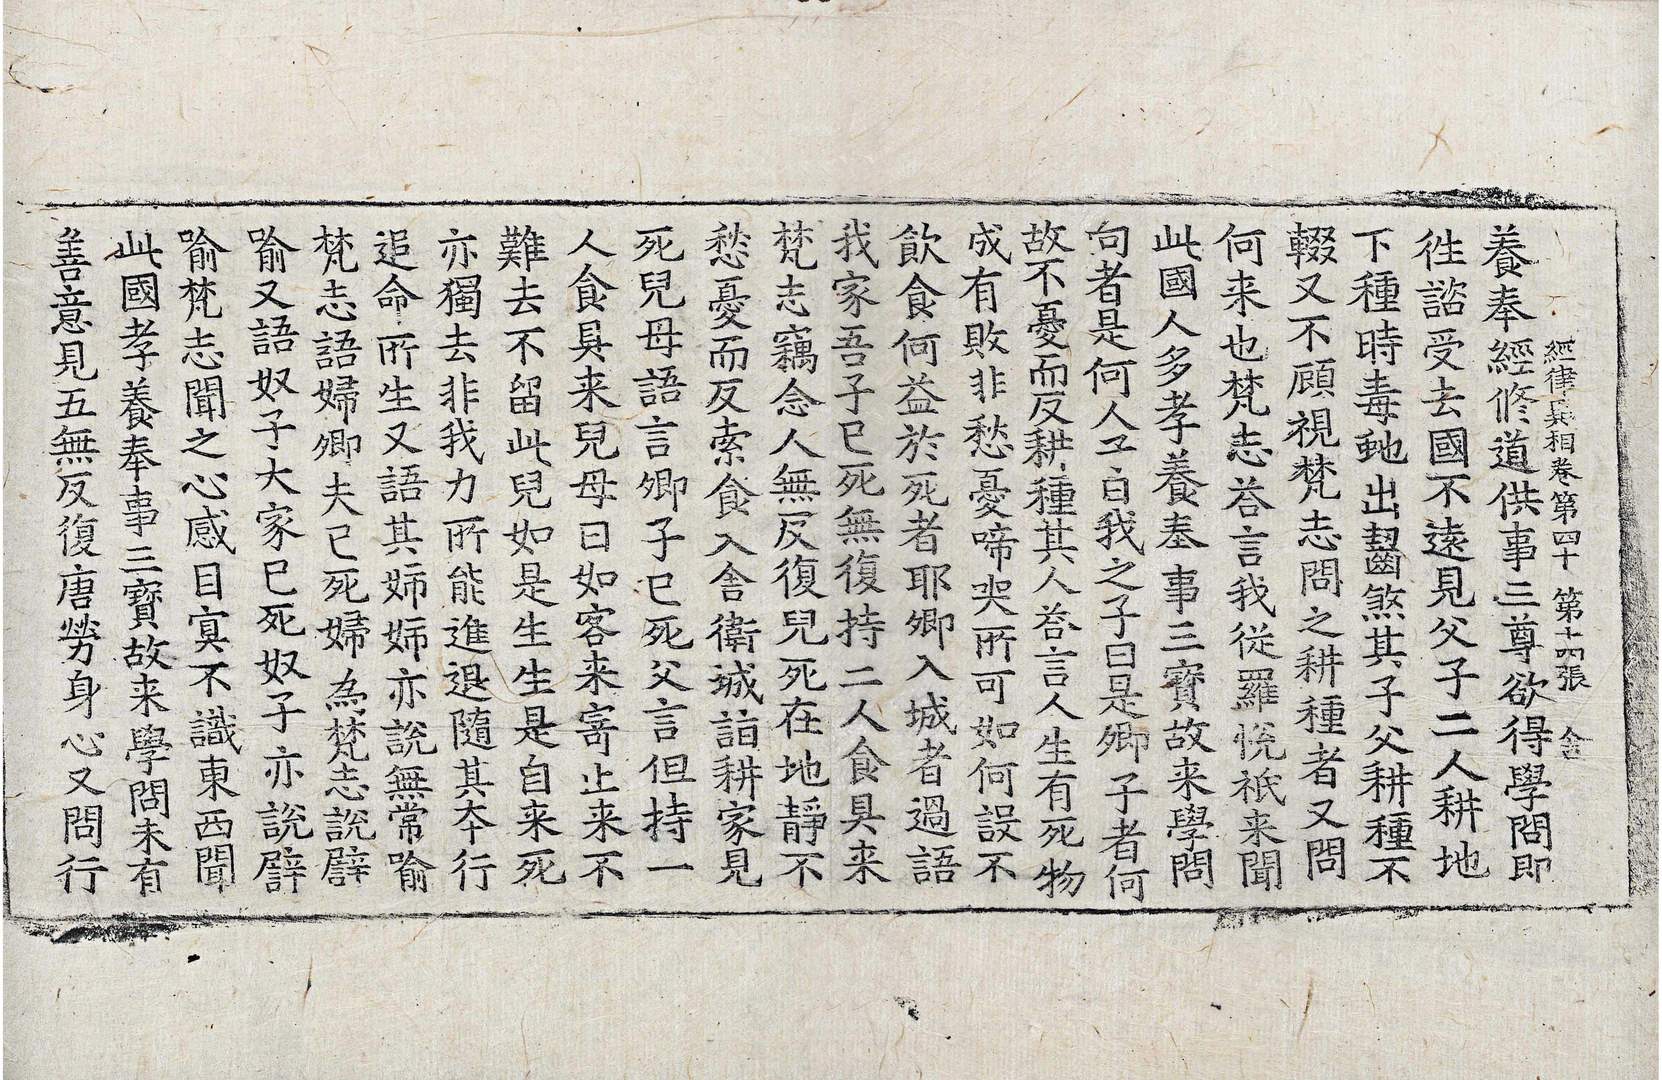 經律異相卷第四十 第十四張 舍
養奉經修道供事三尊欲得學問即
徃諮受去國不遠見父子二人耕地
下種時毒虵出齧煞其子父耕種不
輟又不顧視梵志問之耕種者又問
何来也梵志荅言我從羅悅祇来聞
此國人多孝養奉事三寶故来學問
句者是何人子曰我之子曰是卿子者何
故不憂而反耕種其人荅言人生有死物
成有敗非愁憂啼哭所可如何設不
飲食何益於死者耶卿入城者過語
我家吾子已死無復持二人食具来
梵志竊念人無反復兒死在地靜不
愁憂而反索食入舍衛城詣耕家見
死兒母語言卿子已死父言但持一
人食具来兒母曰如客来寄止来不
難去不留此兒如是生生是自来死
亦獨去非我力所能進退随其本行
追命所生又語其姉姉亦說無常喻
梵志語婦卿夫已死婦為梵志說譬
喻又語奴子大家已死奴子亦說譬
喻梵志聞之心感目冥不識東西聞
此國孝養奉事三寶故来學問未有
善意見五無反復唐勞身心又問行